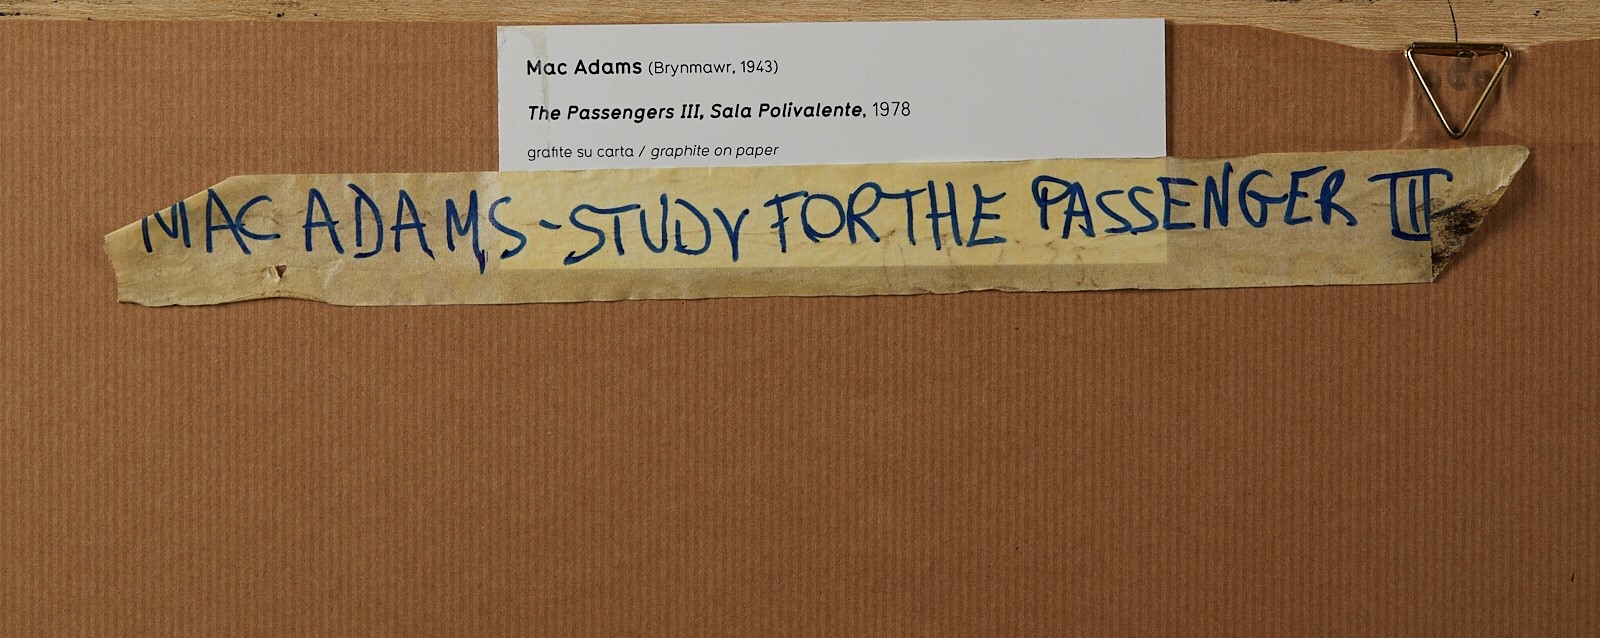 Mac Adams (Brynmawr, 1943)
The Passengers III, Sala Polivalente, 1978
grafite su carta / graphite on paper
MAC ADAMS - STUDY FOR THE PASSENGER III